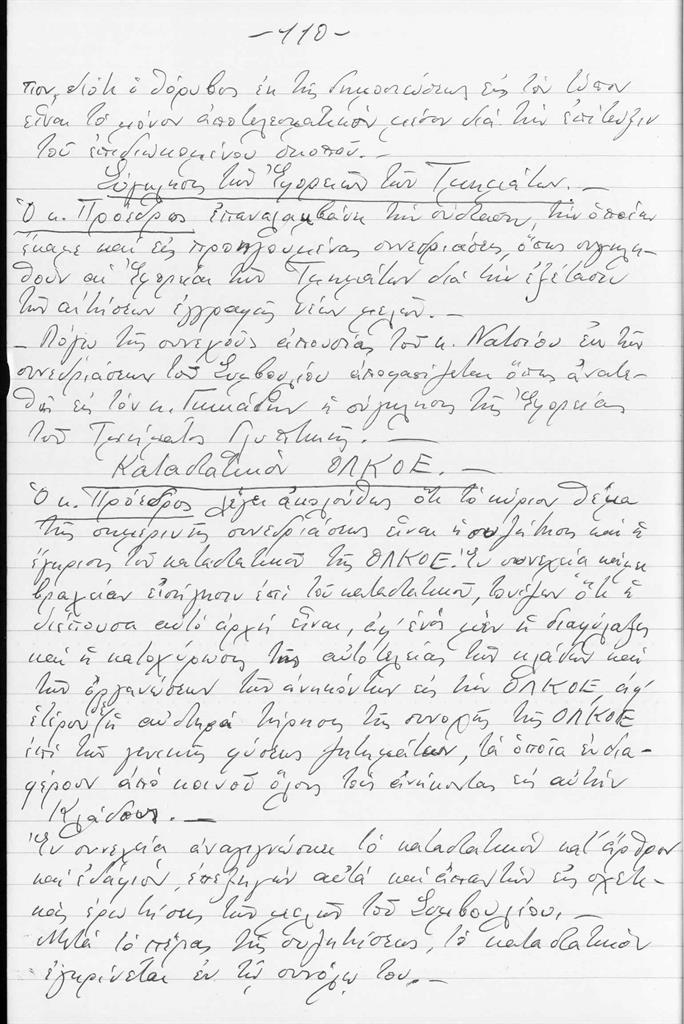 -110-
πον, διότι ὁ θόρυβος ἐκ τῆς δημοσιεύσεως εἰς τὸν τύπον
εἶναι τὸ μόνον ἀποτελεσματικὸν μέσον διὰ τὴν ἐπίτευξιν
τοῦ ἐπιδιωκομένου σκοποῦ.-
Σύγκλησις τῶν Ἐφορειῶν τῶν Τμημάτων.-
Ὁ κ. Πρόεδρος ἐπαναλαμβάνει τὴν σύστασιν, τὴν ὁποίαν
ἔκαμε καὶ εἰς προηγουμένας συνεδριάσεις, ὅπως συγκλη-
θοῦν αἱ Ἐφορεῖαι τῶν Τμημάτων διὰ τὴν ἐξέτασιν
τῶν αἰτήσεων ἐγγραφῆς νέων μελῶν.-
- Λόγῳ τῆς συνεχοῦς ἀπουσίας τοῦ κ. Νατσίου ἐκ τῶν
συνεδριάσεων τοῦ Συμβουλίου ἀποφασίζεται ὅπως ἀνατε-
θῇ εἰς τὸν κ. ἡ σύγκλησις τῆς Ἐφορείας
τοῦ Τμήματος Γλυπτικῆς.-
Καταστατικὸν ΟΛΚΟΕ.-
Ὁ κ. Πρόεδρος λέγει ἀκολούθως ὅτι τὸ κύριον θέμα
τῆς σημερινῆς συνεδριάσεως εἶναι ἡ συζήτησις καὶ ἡ
ἔγκρισις τοῦ καταστατικοῦ τῆς ΟΛΚΟΕ. Ἐν συνεχείᾳ κάμνει
βραχεῖαν εἰσήγησιν ἐπὶ τοῦ καταστατικοῦ, τονίζων ὅτι ἡ
διέπουσα αὐτὸ ἀρχὴ εἶναι, ἀφ' ἑνὸς μὲν ἡ διαφύλαξις
καὶ ἡ κατοχύρωσις τῆς αὐτοτελείας τῶν κλάδων καὶ
τῶν ὀργανώσεων τῶν ἀνηκόντων εἰς τὴν ΟΛΚΟΕ, ἀφ'
ἑτέρου ἡ αὐστηρὰ τήρησις τῆς συνοχῆς τῆς ΟΛΚΟΕ
ἐπὶ τῶν γενικῆς φύσεως ζητημάτων, τὰ ὁποῖα ἐνδια-
φέρουν ἀπὸ κοινοῦ ὅλους τοὺς ἀνήκοντας εἰς αὐτὴν
Κλάδους.-
Ἐν συνεχείᾳ ἀναγιγνώσκει τὸ καταστατικὸν κατ' ἄρθρον
καὶ ἐδάφιον, ἐπεξηγῶν αὐτὰ καὶ ἀπαντῶν εἰς σχετι-
κὰς ἐρωτήσεις τῶν μελῶν τοῦ Συμβουλίου.-
Μετὰ τὸ πέρας τῆς συζητήσεως, τὸ καταστατικὸν
ἐγκρίνεται ἐν τῷ συνόλῳ του.-